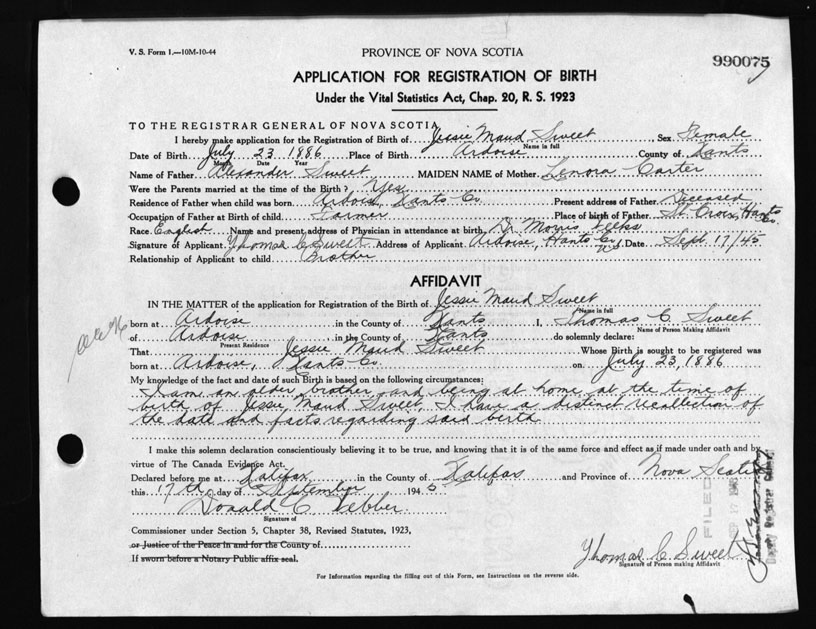 V. S. Form 1.—10M-10-44
PROVINCE OF NOVA SCOTIA
990075
APPLICATION FOR REGISTRATION OF BIRTH
Under the Vital Statistics Act, Chap. 20, R. S. 1923
TO THE REGISTRAR GENERAL OF NOVA SCOTIA
I hereby make application for the Registration of Birth of Jessie Maud Sweet Sex Female
Name in full
Date of Birth July 23 1886 Place of Birth Ardoise County of Hants
Month Date Year
Name of Father Alexander Sweet MAIDEN NAME of Mother Lenora Carter
Were the Parents married at the time of the Birth? Yes
Residence of Father when child was born Ardoise, Hants Co. Present address of Father Deceased
Occupation of Father at Birth of child Farmer Place of birth of Father St. Croix, Hants Co.
Race English Name and present address of Physician in attendance at birth Dr Morris
Signature of Applicant Thomas C Sweet Address of Applicant Ardoise, Hants Co. N.S. Date Sept. 17/45
Relationship of Applicant to child Brother
AFFIDAVIT
IN THE MATTER of the application for Registration of the Birth of Jessie Maud Sweet
Name in full
born at Ardoise in the County of Hants I, Thomas C. Sweet
Name of Person Making Affidavit
of Ardoise in the County of Hants do solemnly declare:
Present Residence
That Jessie Maud Sweet Whose Birth is sought to be registered was
born at Ardoise, Hants Co. on July 23, 1886
My knowledge of the fact and date of such Birth is based on the following circumstances:
I am an older brother and being at home at the time of
birth of Jessie Maud Sweet, I have a distinct recollection of
the date and facts regarding said birth
I make this solemn declaration conscientiously believing it to be true, and knowing that it is of the same force and effect as if made under oath and by
virtue of The Canada Evidence Act.
Declared before me at Halifax in the County of Halifax and Province of Nova Scotia
this 17th day of September 1945
Donald C Webber
Signature of
Commissioner under Section 5, Chapter 38, Revised Statutes, 1923,
or Justice of the Peace in and for the County of
If sworn before a Notary Public affix seal.
Thomas C. Sweet
Signature of Person making Affidavit
FILED
For Information regarding the filling out of this Form, see Instructions on the reverse side.